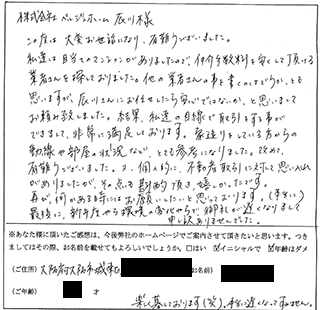 株式会社 ペンギンホーム 辰川様
この度は大変お世話になり、有難うございました。
私達は目当てのマンションがありましたので、仲介手数料を安くして頂ける
業者さんを探しておりました。他の業者さんの事を書くのはどうか、とも
思いますが、辰川さんにお任せしたら安心ではないか、と思いまして
お願い致しました。結果、私達の目線で取引をする事が
できまして、非常に満足しております。家造りをしている方からの
動線や部屋の状況など、とても参考になりました。改めて、
有難うございました。又、個人的に、不動産取引に対して思い入れ
がありましたが、その点も勘酌頂き、嬉しかったです。
再び、何かある時にはお願いしたいと思っております。(本当に)
最後に、新年度やら環境の変化やらで御礼が遅くなりまして
申し訳ありませんでした。
※あなた様に頂いたご感想は、今後弊社のホームページでご案内させて頂きたいと思います。つき
ましてはその際、お名前を載せてもよろしいでしょうか。□はい ☑イニシャルで ☑年齢はダメ
(ご住所) 大阪府大阪市城東区 (お名前)
(ご年齢) 才
楽しく暮しております(笑)。本当に遅くなってすみません。